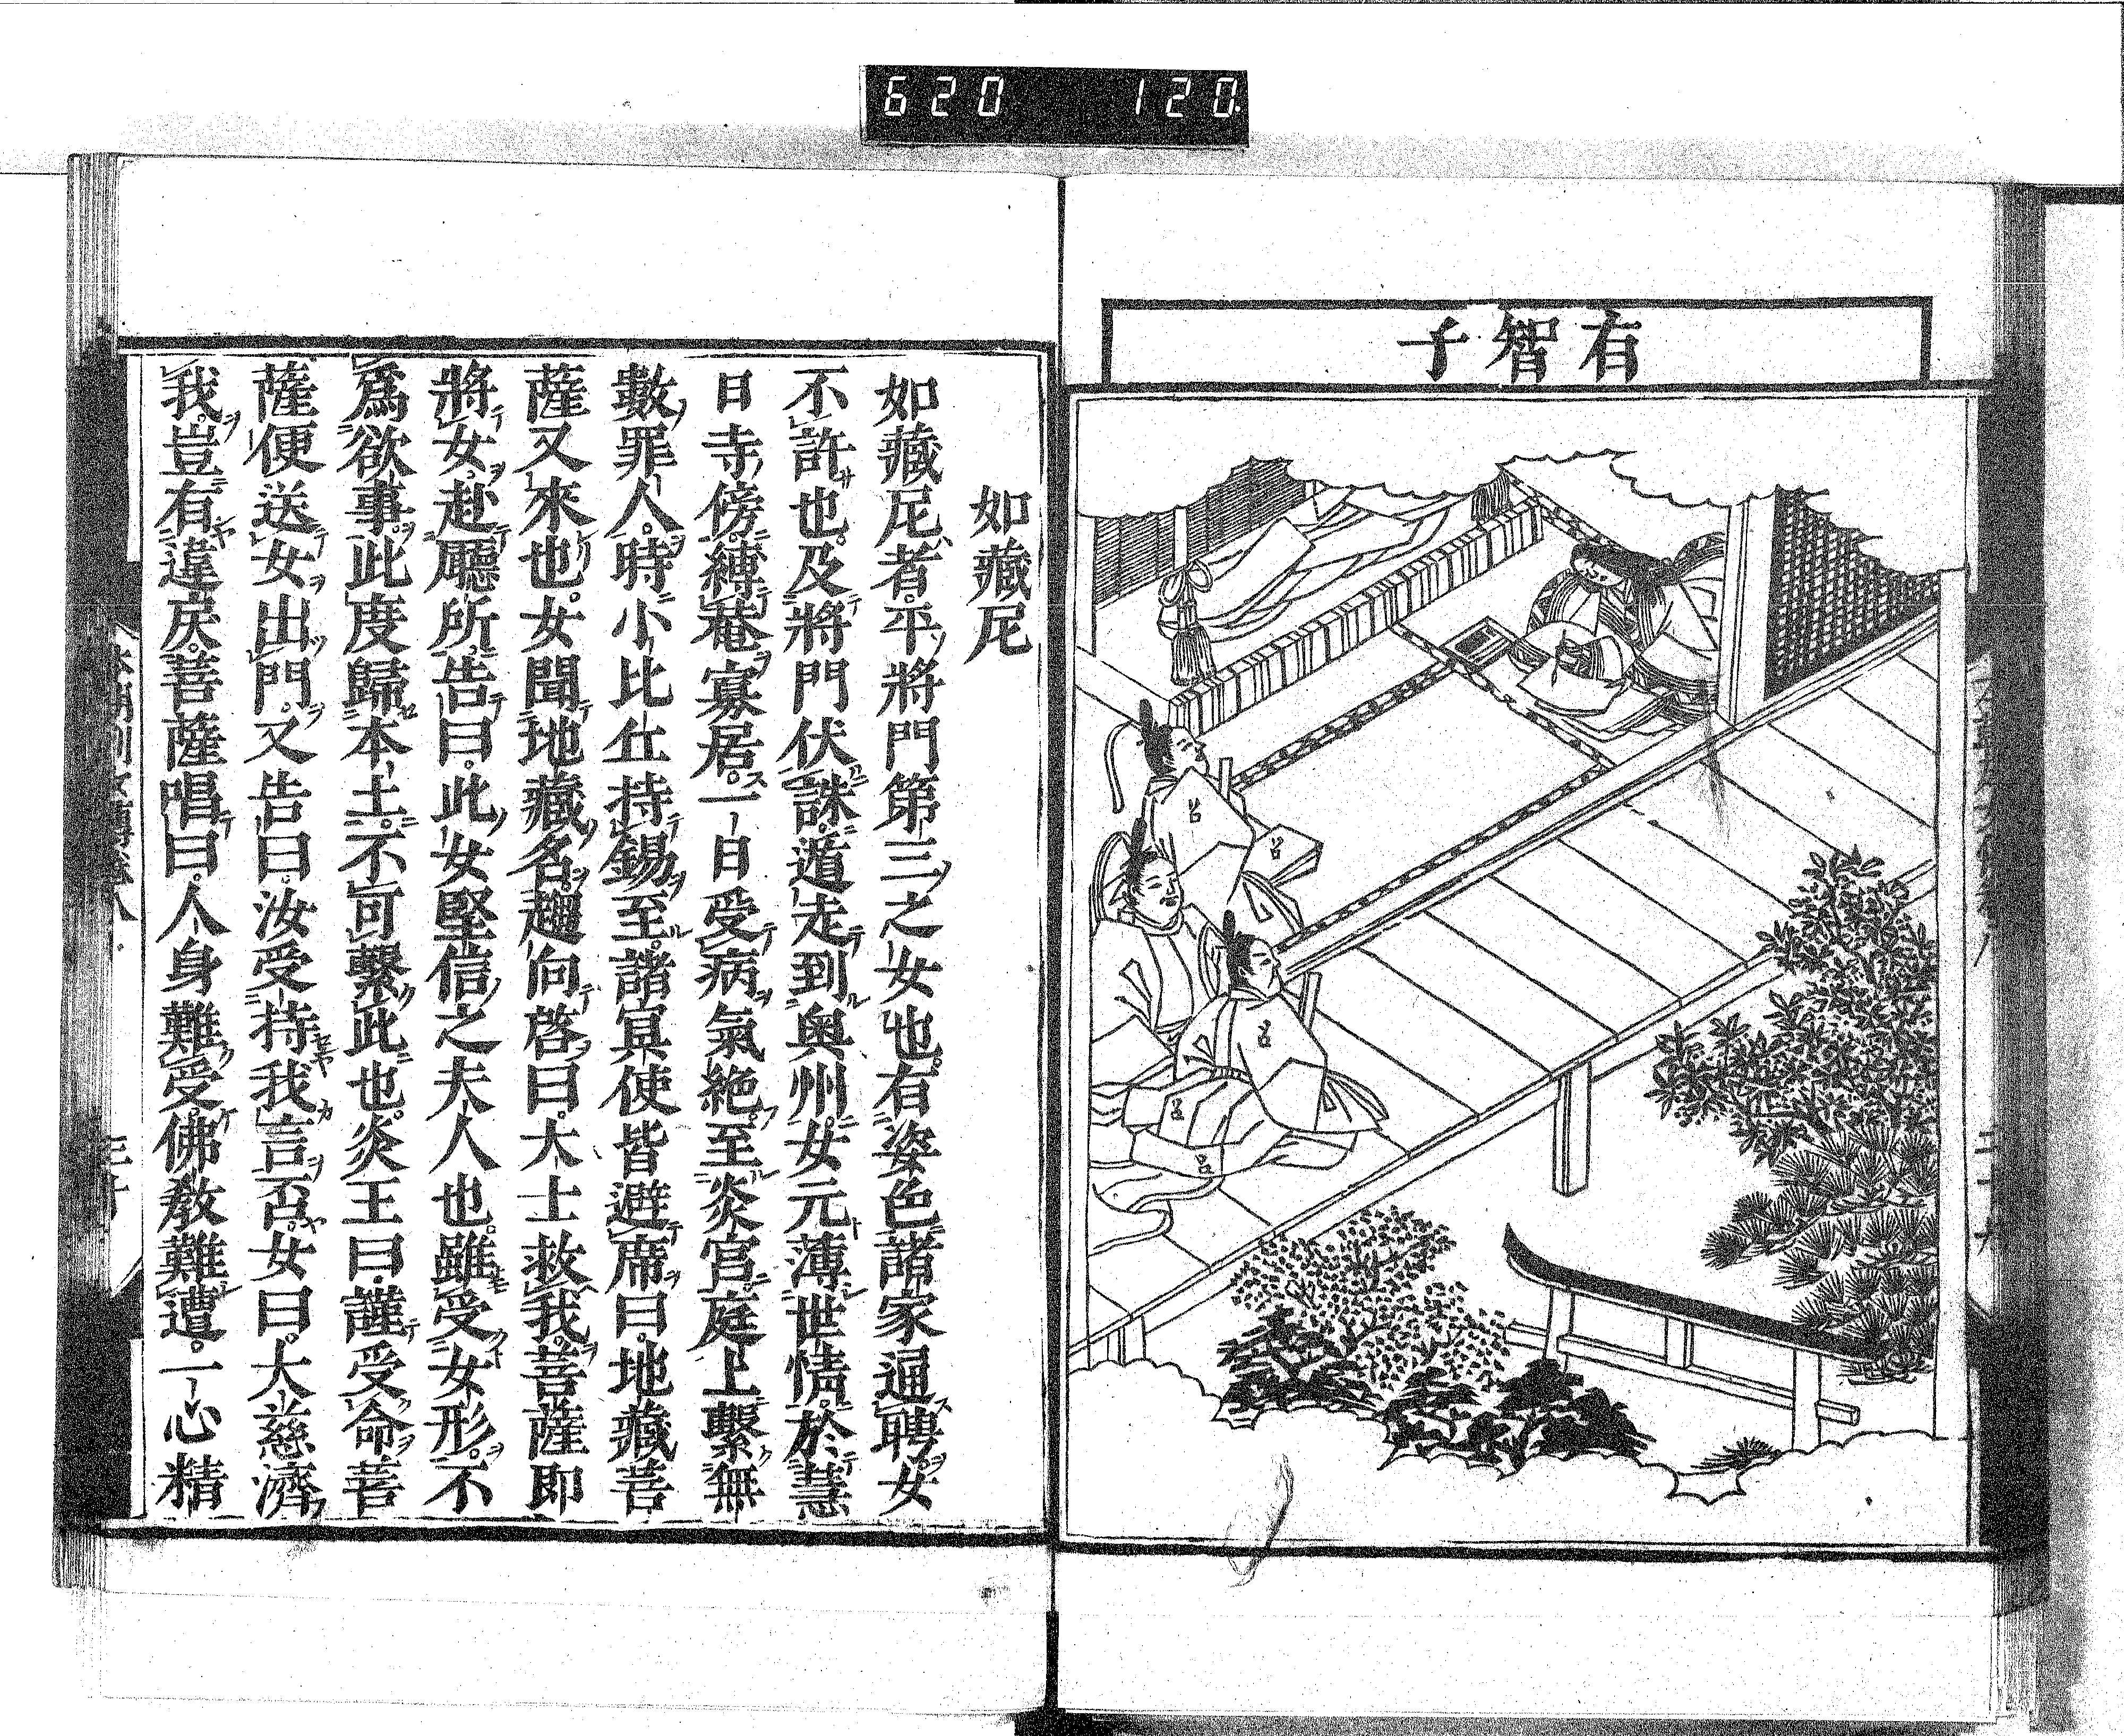 620 120
有智子
如藏尼
如藏尼者平將門第三之女也有姿色諸家逼聘女
不許也及將門伏誅遁走到奧州女元薄世情於慧
日寺傍縛菴寡居一日受病氣絶至炎宮庭上繫無
數罪人時小比丘持錫至諸冥使皆避席曰地藏菩
薩又來也女聞地藏名趨向啓曰大士救我菩薩即
將女赴聽所告曰此女堅信之夫人也雖受女形不
爲欲事此度歸本土不可繫此也炎王曰謹受命菩
薩便送女出門又告曰汝受持我言否女曰大慈濟
我豈有違戾菩薩唱曰人身難受佛敎難遭一心精